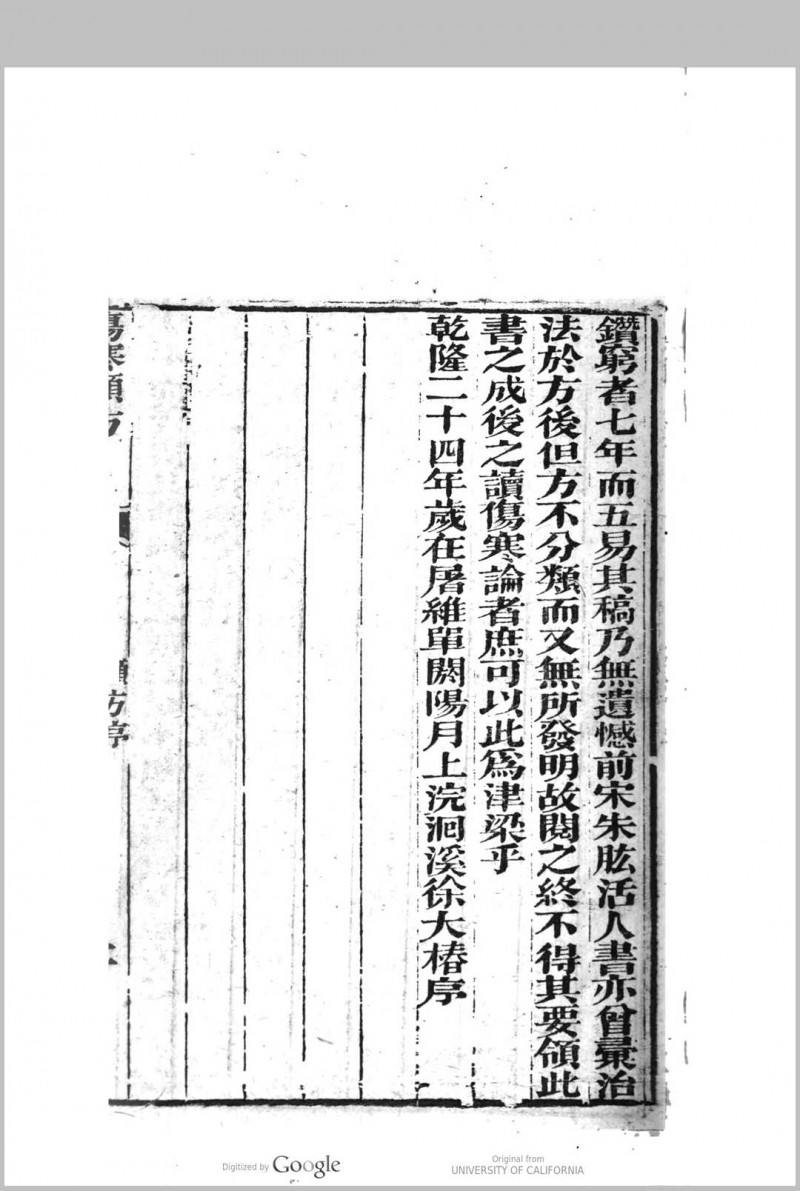 鑽窮者七年而五易其稿乃無遺憾前宋朱肱活人書亦曾彙治
法於方後但方不分類而又無所發明故閱之終不得其要領此
書之成後之讀傷寒論者庶可以此爲津梁乎
乾隆二十四年歲在屠維單閼陽月上浣洄溪徐大椿序
傷寒類方
類方序
Digitized by Google
Original from
UNIVERSITY OF CALIFORNIA